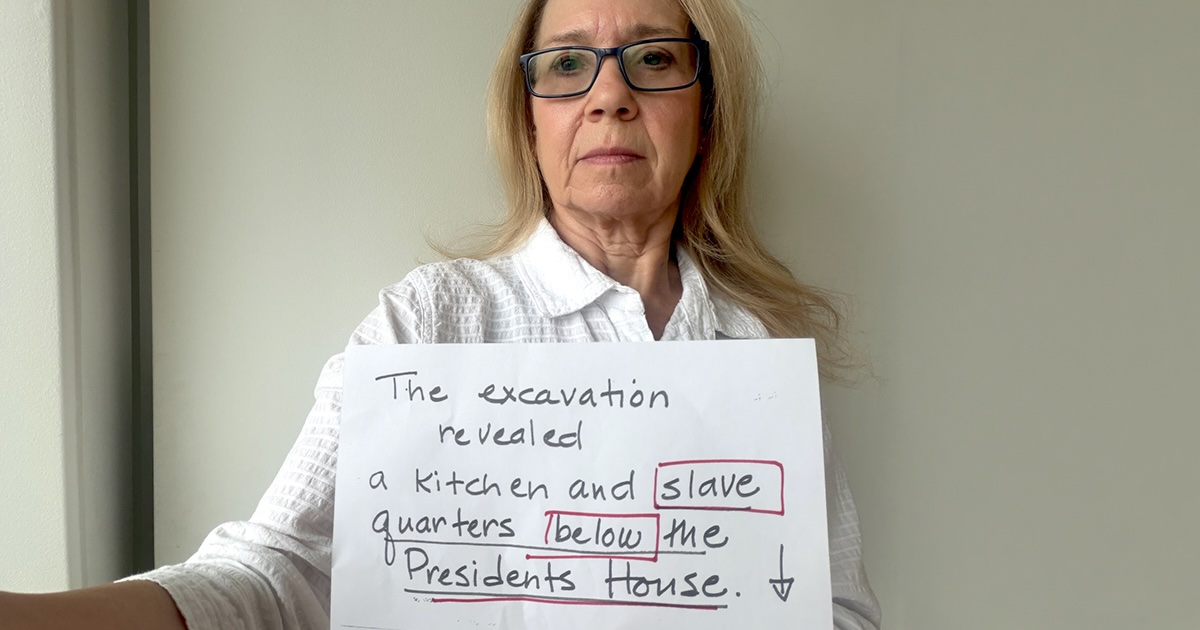 The excavation
revealed
a kitchen and slave
quarters below the
Presidents House.